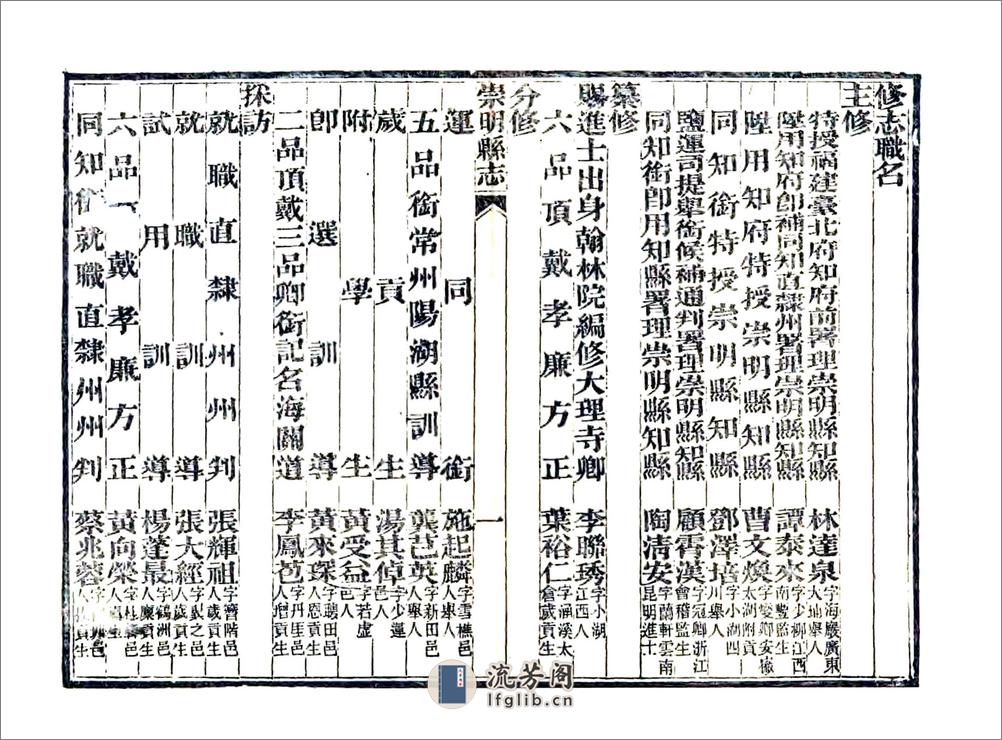 修志職名
主修
特授福建臺北府知府前署理崇明縣知縣 林達泉 字海巖廣東大埔舉人
陞用知府即補同知直隸州署理崇明縣知縣 譚泰來 字少柳江西南豐監生
陞用知府特授崇明縣知縣 曹文煥 字 卿安徽太湖附貢
同知銜特授崇明縣知縣 鄧澤培 字小湖四川舉人
鹽運司提舉銜候補通判署理崇明縣知縣 顧霄漢 字冠卿浙江會稽監生
同知銜即用知縣署理崇明縣知縣 陶清安 字蘭軒雲南昆明進士
纂修
賜進士出身翰林院編修大理寺卿 李聯琇 字小湖江西人
六品頂戴孝廉方正 葉裕仁 字涵溪太倉歲貢生
分修
崇明縣志
一
運同銜 施起麟 字雪樵邑人舉人
五品銜常州陽湖縣訓導 龔芑英 字新田邑人舉人
歲貢生 湯其倬 字少蓮邑人
附學生 黃受益 字若虛邑人
即選訓導 黃來琛 字 田邑人恩貢生
二品頂戴三品卿銜記名海關道 李鳳苞 字丹厓邑人增貢生
採訪
就職直隸州州判 張輝祖 字簪階邑人歲貢生
就職訓導 張大經 字 之邑人歲貢生
試用訓導 楊蓬最 字鶴洲邑人廩貢生
六品 戴孝廉方正 黃向榮 字杜 邑人
同知銜就職直隸州州判 蔡兆蓉 邑人 貢生
流芳阁
lfglib.cn